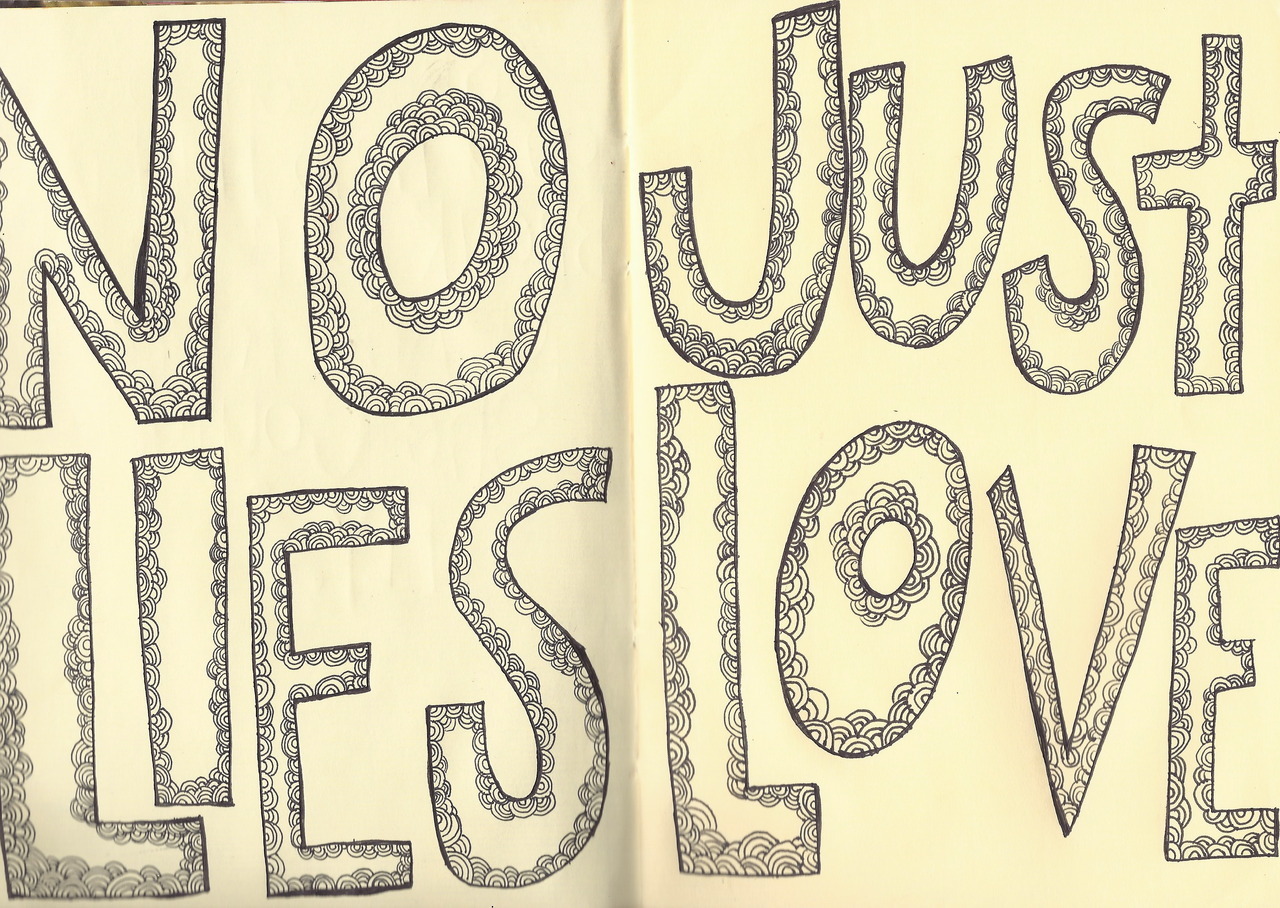 NO
LIES
JUSt
LOVE